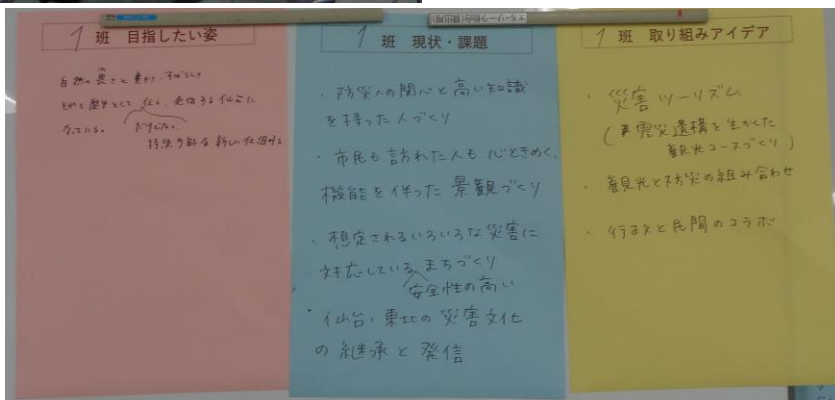 1 班 目指したい姿
自然の 豊さと
それを 歴史として 伝え、発信する 仙台に
なっている。
持続可能な 新しい仕組み
1 班 現状・課題
・防災への関心と高い知識
を持った人づくり
・市民も訪れた人も心ときめく、
機能を伴った景観づくり
・想定されるいろいろな災害に
対応している まちづくり
安全性の高い
・仙台・東北の災害文化
の継承と発信
1 班 取り組みアイデア
・災害ツーリズム
(震災遺構を生かした
観光コースづくり)
・観光と防災の組み合わせ
・行政と民間のコラボ